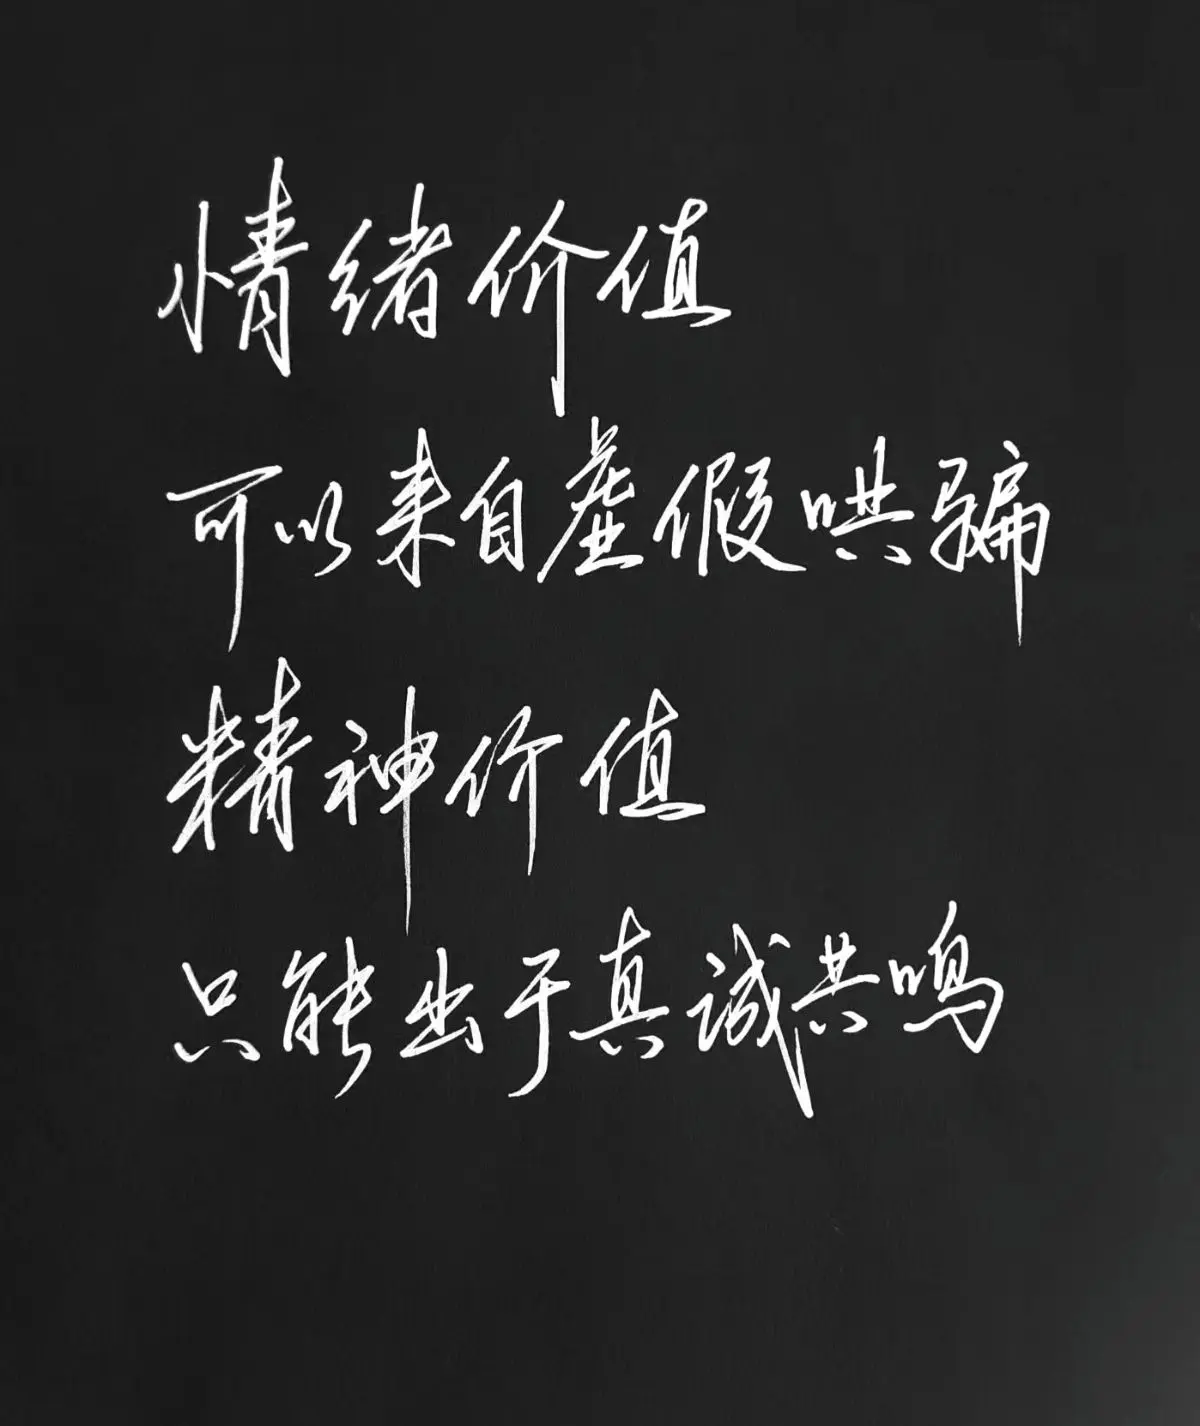 情绪价值
可以来自虚假哄骗
精神价值
只能出于真诚共鸣